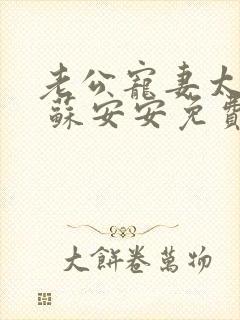 老公寵妻太
蘇安安免費
大餅卷萬物